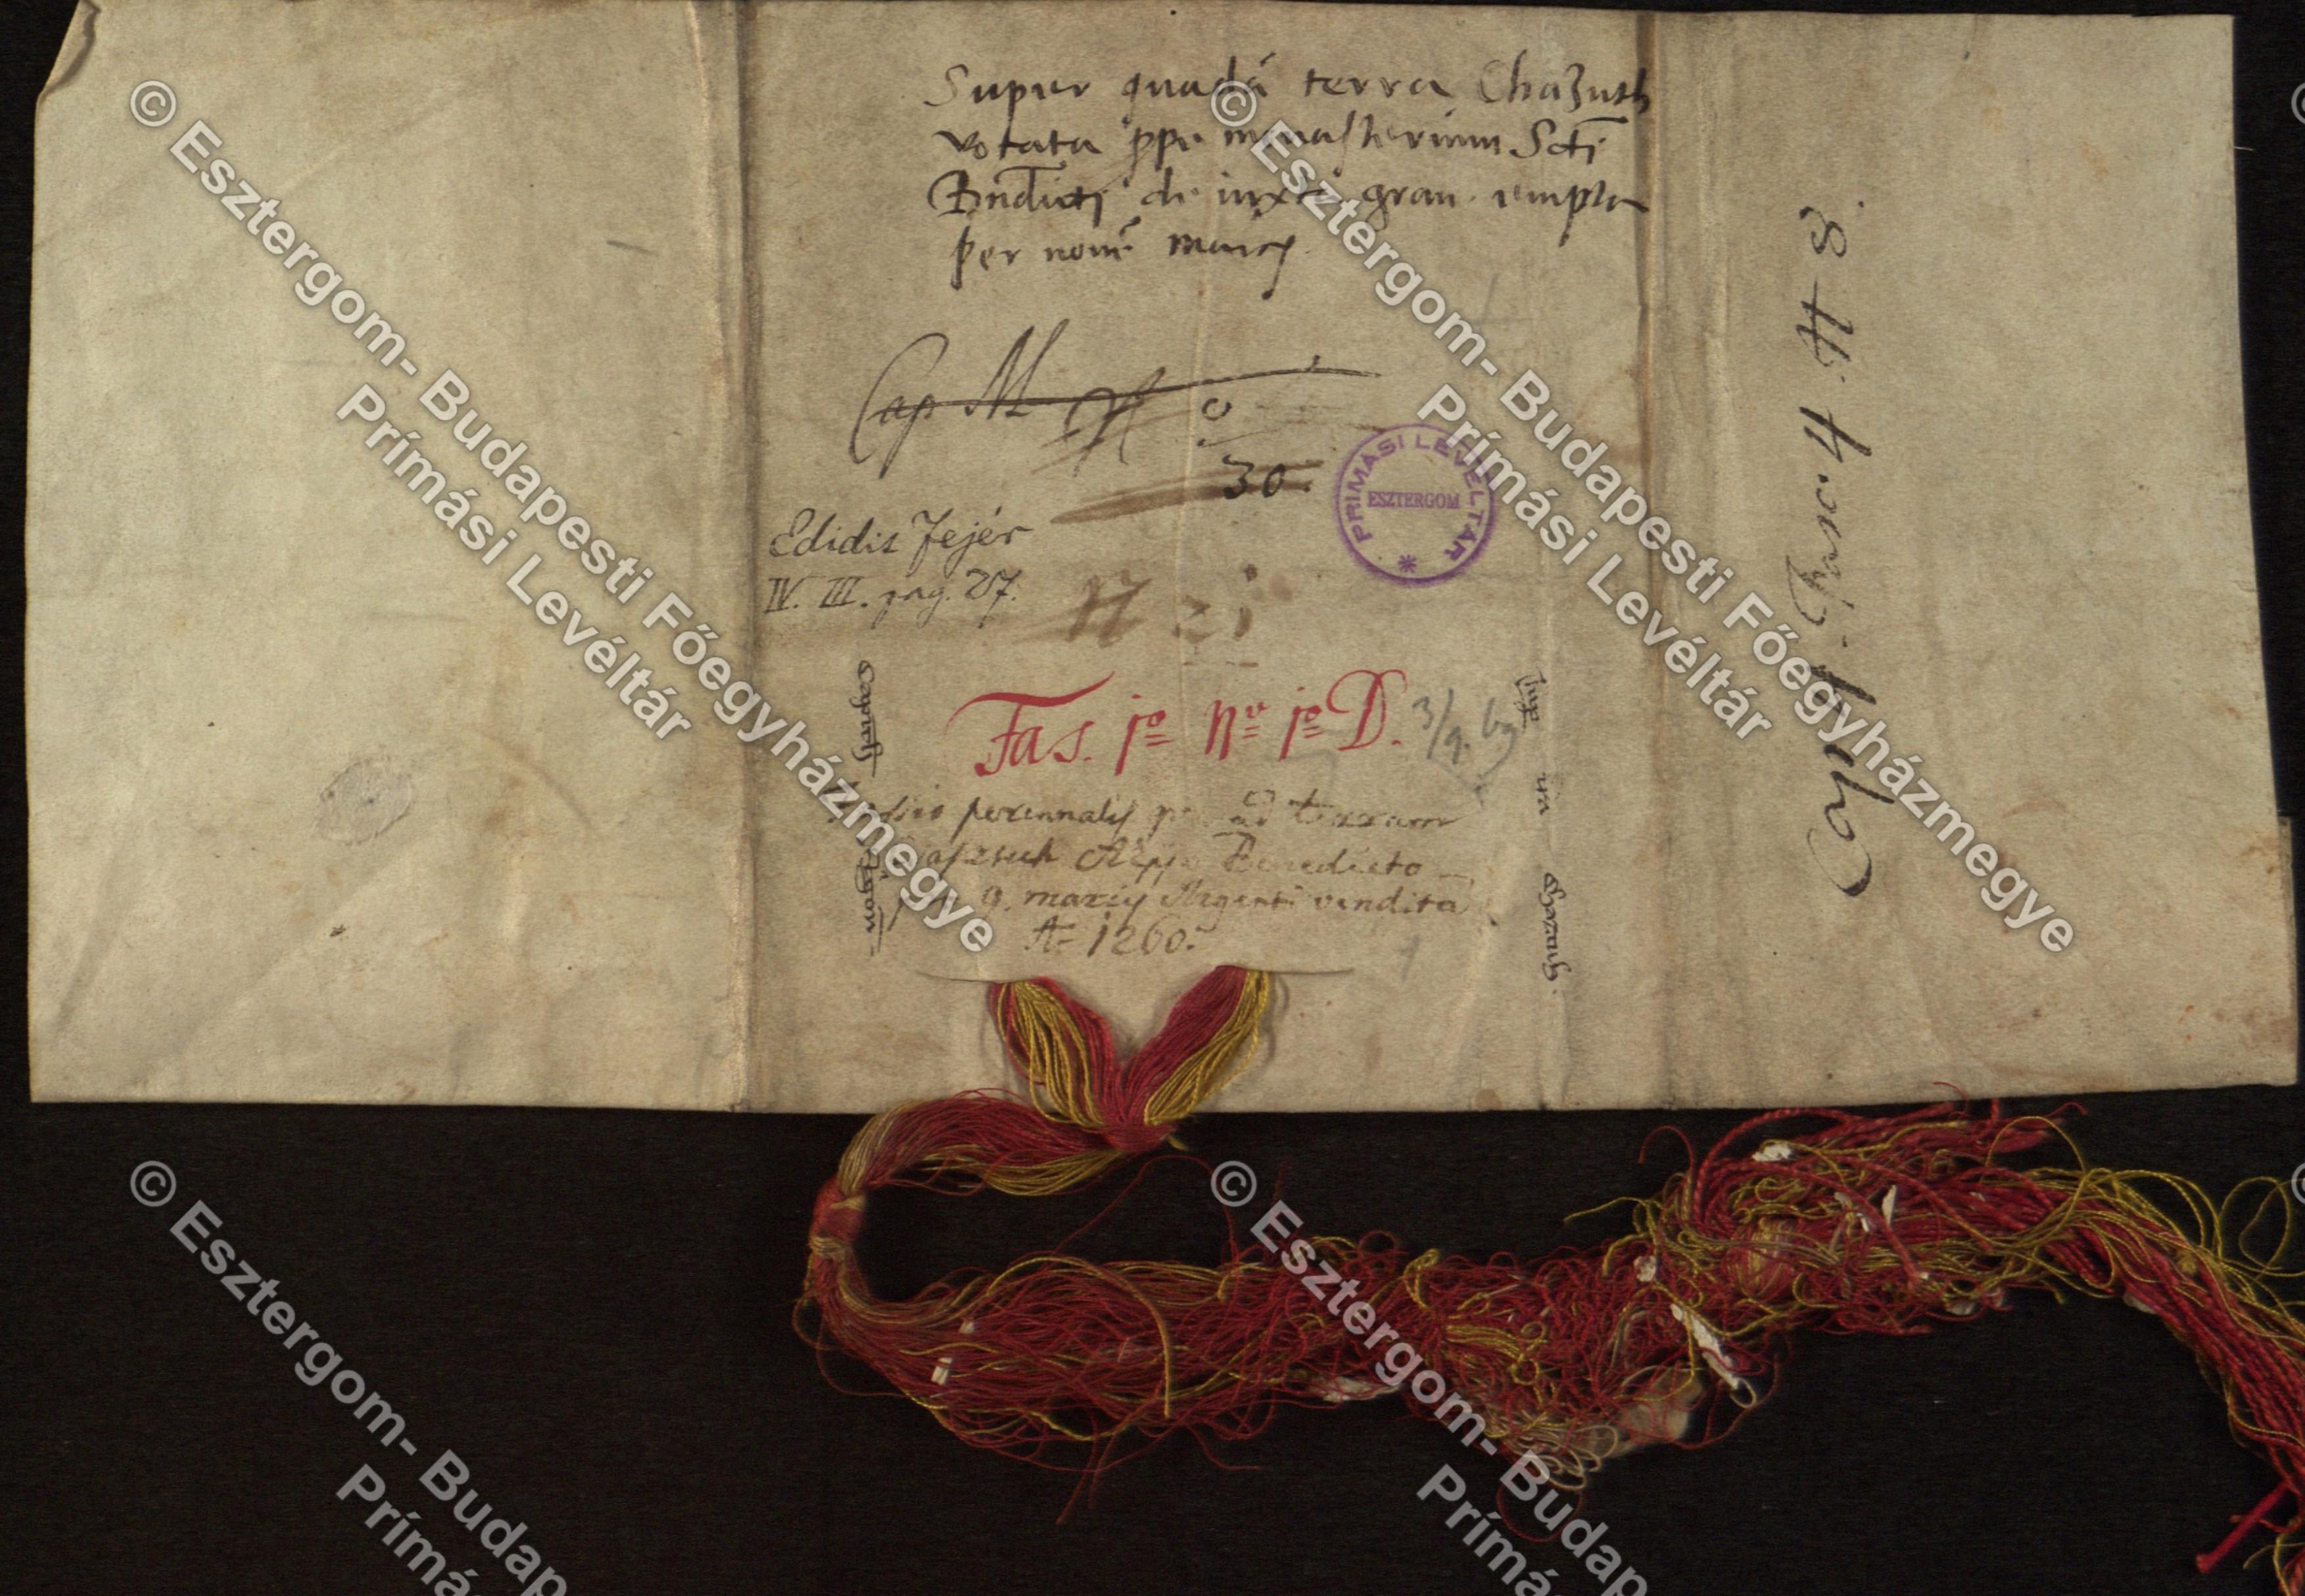 Super quadā terra Chazuth
votata ppe monasterium Scti
Bndicti de iuxta gran empta
per novē marcꝭ
Cap M N o
30.
Edidit Fejér
IV. III. pag. 27.
N 21
Fas. jo No jo D.
perennalis ad terram
Benedicto
9. marcis Argenti vendita
Ao 1260.
Caps. 1. Fasc. 4. # 8.
PRIMÁSI LEVÉLTÁR
ESZTERGOM
© Esztergom- Budapesti Főegyházmegye
Prímási Levéltár
© Esztergom- Budapesti Főegyházmegye
Prímási Levéltár
© Esztergom- Budap
Prímá
© Esztergom- Budap
Prímá